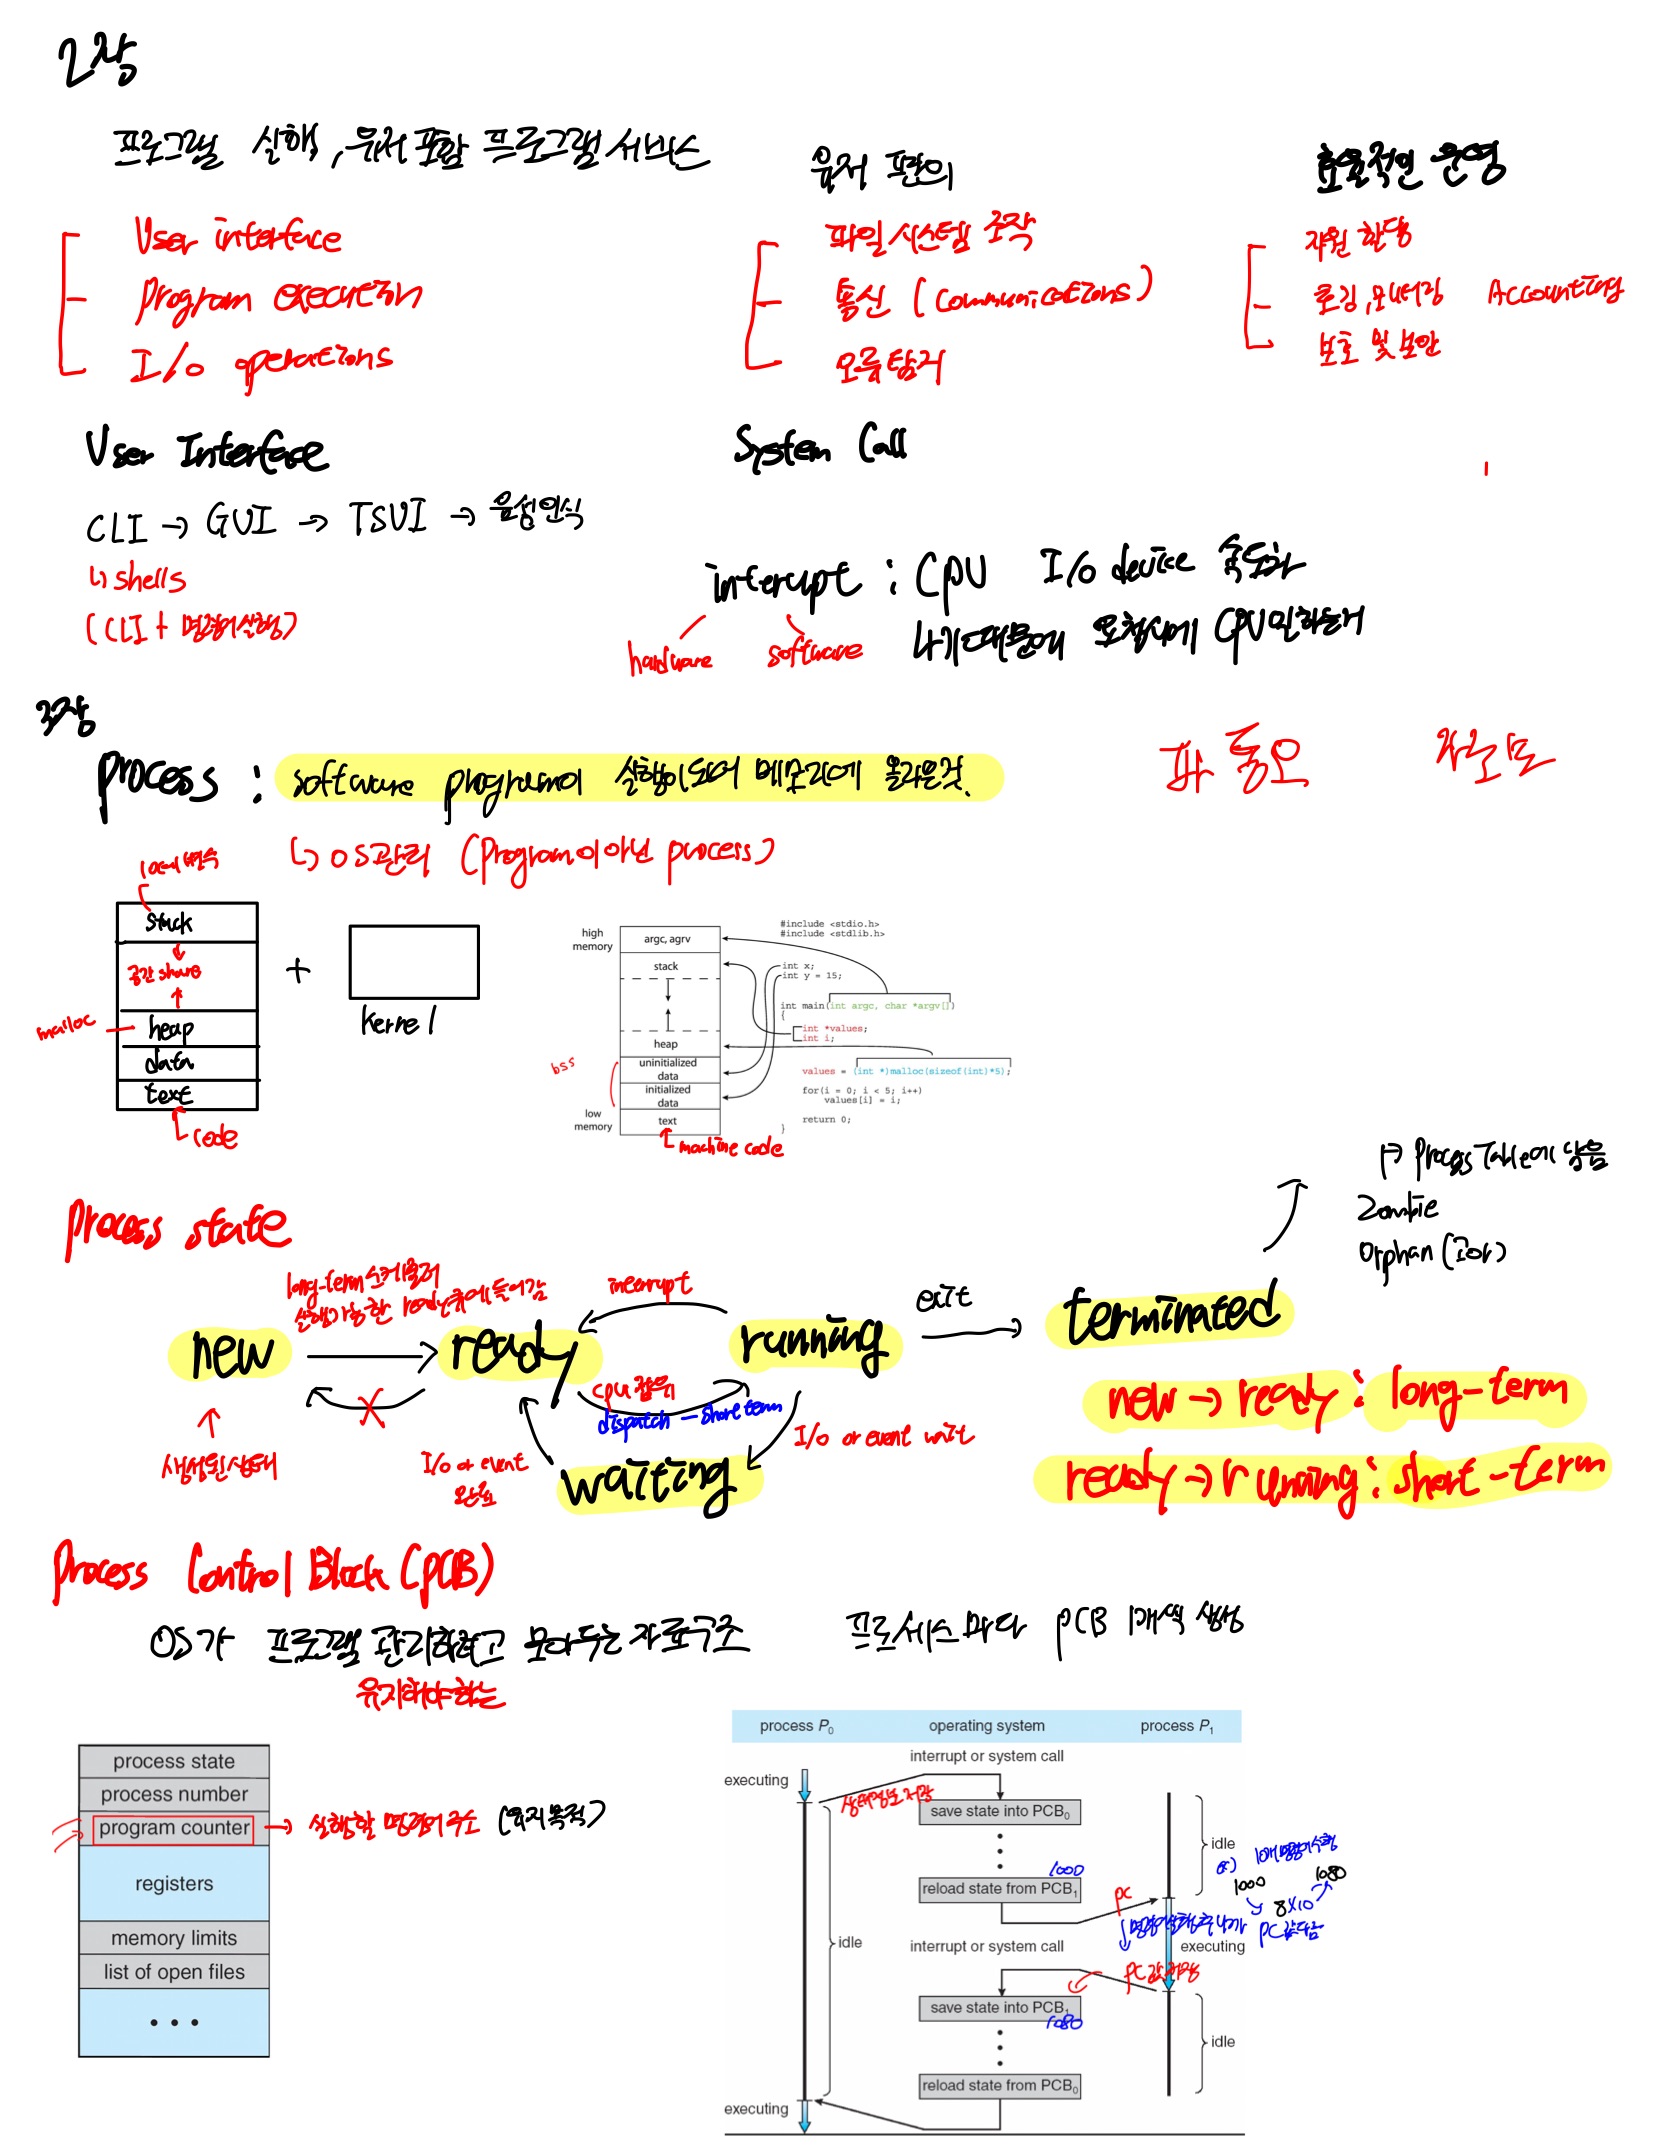 2장
프로그램 실행, 유저 포함 프로그램 서비스
User interface
Program execution
I/o operations
유저 편의
파일 시스템 조작
통신 (Communications)
오류 탐지
효율적인 운영
자원 할당
로깅, 모니터링 Accounting
보호 및 보안
User Interface
CLI → GUI → TSUI → 음성인식
↳ shells
(CLI + 명령어 실행)
System Call
interupt : CPU I/o device 속도차
나기 때문에 요청시에 CPU 일하는거
hardware software
3장
process : software program이 실행이되어 메모리에 올라온것.
↳ OS관리 (Program이 아닌 process)
파 통 오
자 로 보
local 변수
stack
공간 share
malloc
heap
data
text
code
+
kernel
high
memory
argc, agrv
stack
heap
uninitialized
data
initialized
data
text
low
memory
bss
machine code
#include <stdio.h>
#include <stdlib.h>
int x;
int y = 15;
int main(int argc, char *argv[])
{
int *values;
int i;
values = (int *)malloc(sizeof(int)*5);
for(i = 0; i < 5; i++)
values[i] = i;
return 0;
}
process state
long-term 스케줄러
실행가능한 ready큐에 들어감
new
ready
running
exit
terminated
interrupt
X
생성된 상태
cpu 점유
dispatch - short term
I/o or event
완료
waiting
I/o or event wait
↦ Process Table에 남음
Zombie
orphan (고아)
new → ready : long-term
ready → running : short-term
Process Control Block (PCB)
OS가 프로그램 관리하려고 모아두는 자료구조
유지해야하는
프로세스마다 PCB 1개씩 생성
process state
process number
program counter → 실행할 명령어 주소 (유지 목적)
registers
memory limits
list of open files
• • •
process P0 operating system process P1
interrupt or system call
executing
상태정보 저장
save state into PCB0
idle
ex) 10개 명령어 수행
1000
8×10
1080
PC 값 다음
1000
reload state from PCB1
pc
idle
interrupt or system call
executing
pc값 저장
save state into PCB1
1080
idle
reload state from PCB0
executing